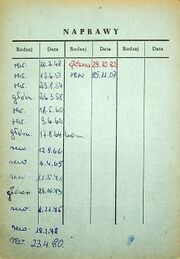 NAPRAWY
Rodzaj Data Rodzaj Data Rodzaj Data
rew. 10.2.48 główna 29.10.82
rew. 13.6.51 rew 05.11.07
rew. 23.8.54
główn. 26.3.58
rew. 18.5.60
rew. 3.6.63
główn. 17.8.64
rew. 12.8.66
rew. 3.4.69
rew.
główna 28.10.73
rew. 8.11.75
rew.
rew. 23.4.80.